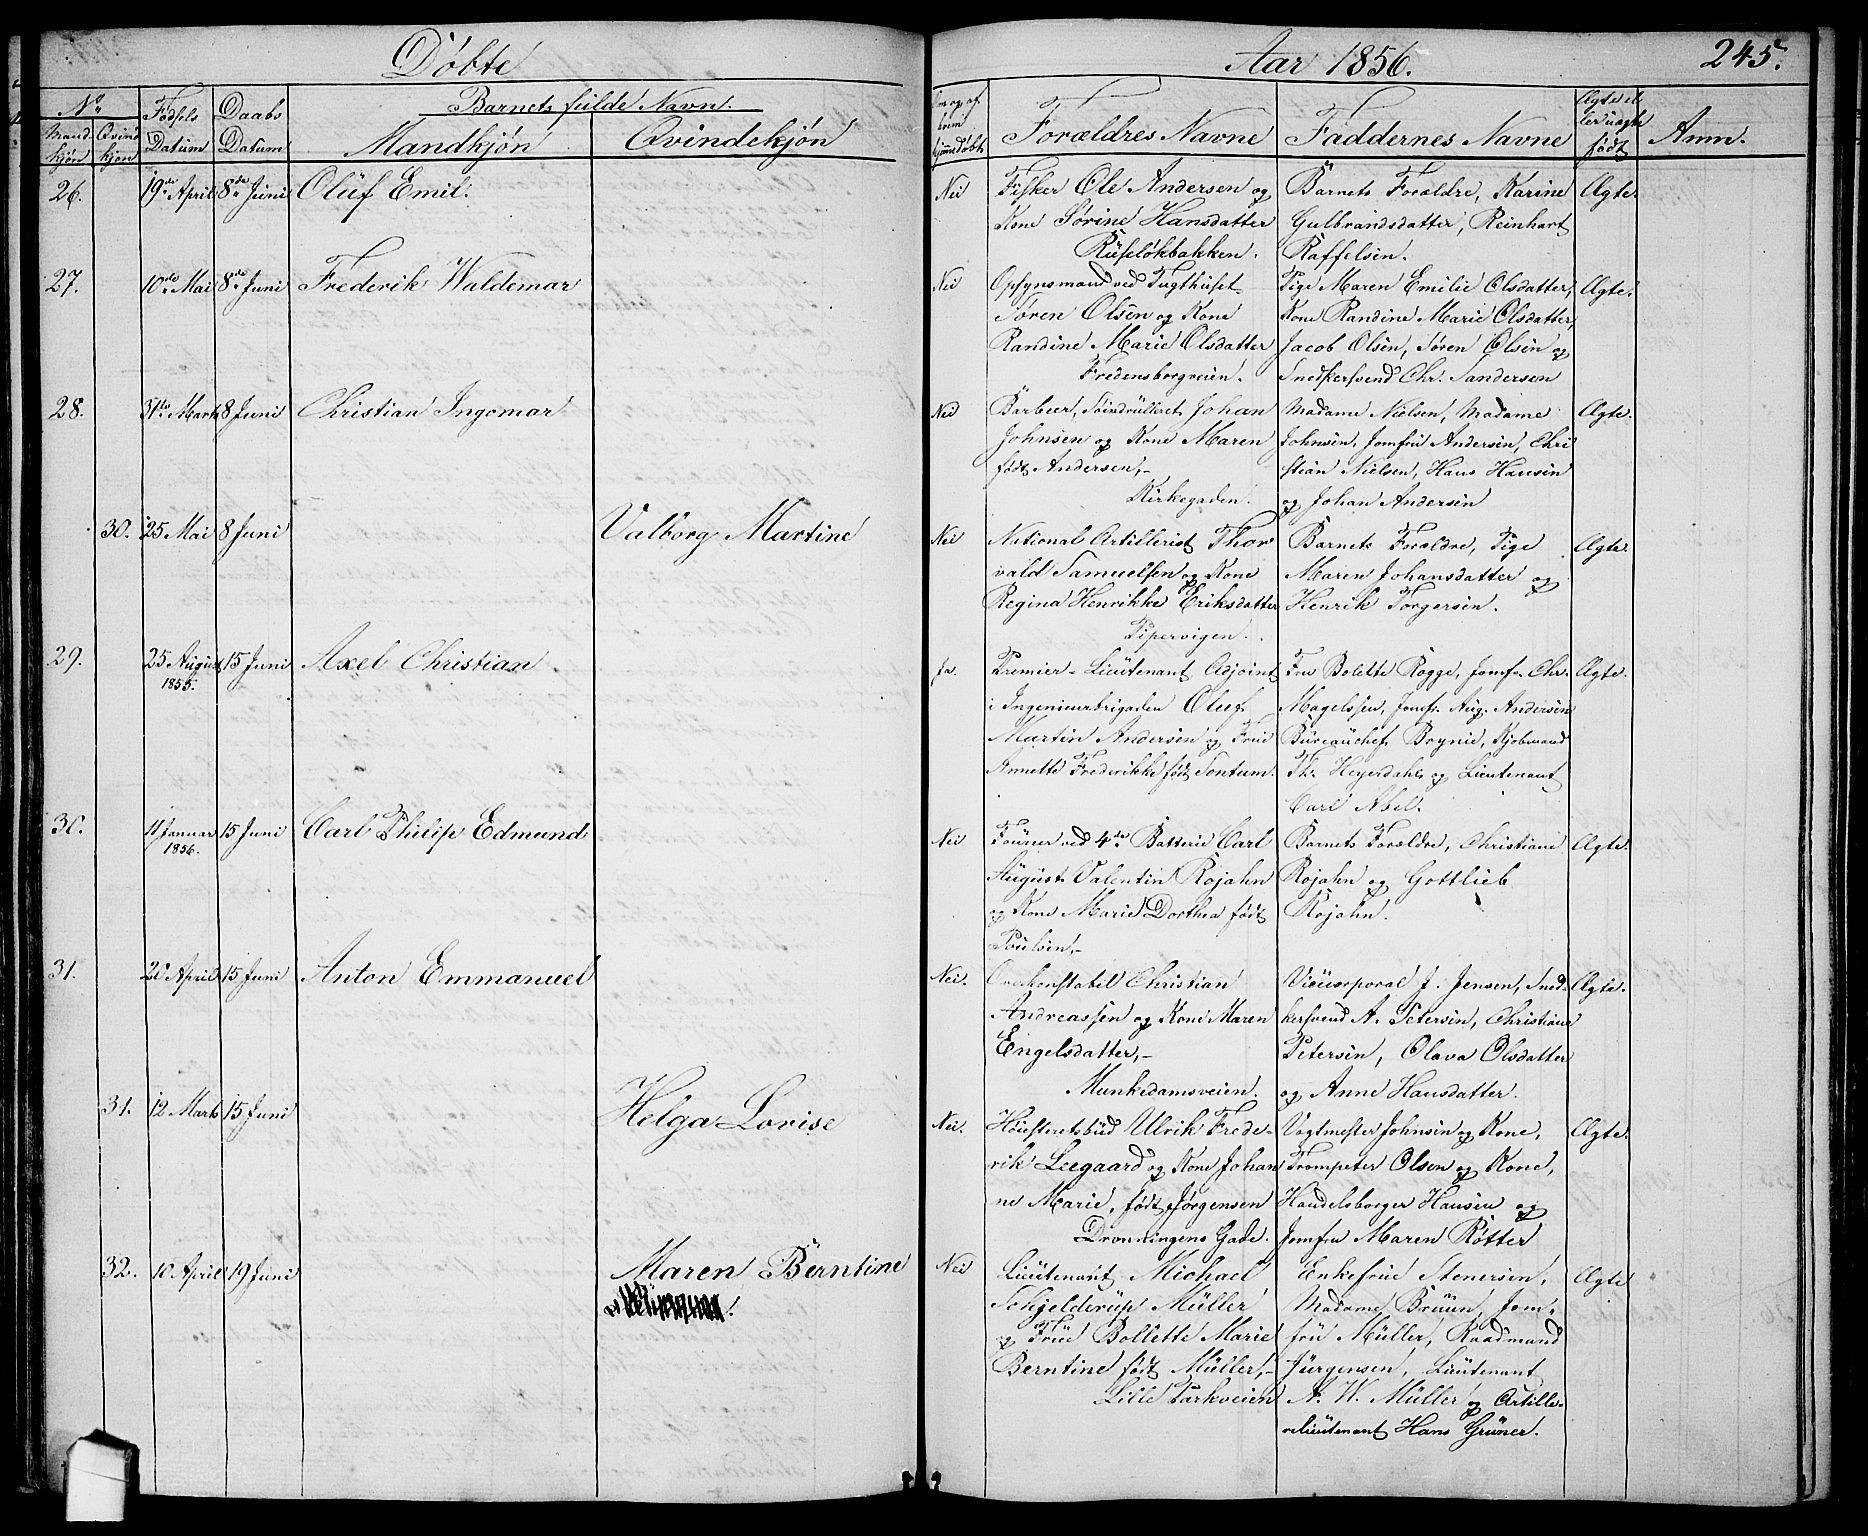 Døbte
Aar 1856.
245.
No
Mandkjön
Qvindkjön
Fødsels Datum
Daabs Datum
Barnets fulde Navn.
Mandkjøn
Qvindekjøn
hjemmedøbt
Forældres Navne
Faddernes Navne
Ægte el ler uægte født
Anm.
26.
19de April
8de Juni
Oluf Emil.
Nei
Fisker Ole Andersen og
Kone Sørine Hansdatter
Ruseløkbakken.
Barnets Forældre, Karine
Gulbrandsdatter, Reinhart
Raffelsen.
Ægte.
27.
10de Mai
8de Juni
Frederik Waldemar
Nei
Opsynsmand ved Tugthuset
Søren Olsen og Kone
Randine Marie Olsdatter
Fredensborgveien.
Pige Maren Emilie Olsdatter,
Kone Randine Marie Olsdatter,
Jacob Olsen, Søren Olsen og
Snedkersvend Chr. Sandersen
Ægte.
28.
31te Marts
8 Juni
Christian Ingomar
Nei
Barbeer, Johan
Johnsen og Kone Maren
født Andersen,-
Kirkegaden.
Madame Nielsen, Madame
Johnsen, Jomfru Andersen, Chri
stian Nielsen, Hans Hansen
og Johan Andersen
Ægte.
30.
25 Mai
8 Juni
Valborg Martine
Nei
National Artillerist Thor
vald Samuelsen og Kone
Regina Henrikke Eriksdatter
Pipervigen.
Barnets Forældre, Pige
Maren Johansdatter og
Henrik Torgersen.
Ægte.
29.
25 August
1855.
15 Juni
Axel Christian
Ja.
Premier-Lieutenant Adjoint
i Ingenieurbrigaden Oluf
Martin Andersen og Frue
Annette Frederikke født Tontum.
Fru Bolette Rogge, Jomf. Chr.
Magelssen, Jomf. Aug. Andersen
Bureauchef Brynie, Kjøbmand
Th. Heyerdahl og Lieutenant
Carl Abel.
Ægte.
30.
11 Januar
1856.
15 Juni
Carl Philip Edmund
Nei
Fourer ved 4de Batterie Carl
August Valentin Rojahn
og Kone Marie Dorthea født
Poulsen,-
Barnets Forældre, Christiane
Rojahn og Gottlieb
Rojahn.
Ægte.
31.
20 April
15 Juni
Anton Emmanuel
Nei.
Overkonstabel Christian
Andreassen og Kone Maren
Engelsdatter,-
Munkedamsveien.
Vicecorporal J. Jensen, Sned-
kersvend A. Petersen, Christiane
Petersen, Olava Olsdatter
og Anne Hansdatter.
Ægte.
31.
12 Marts
15 Juni
Helga Lovise
Nei.
Høiesteretsbud Ulrik Frede-
rik Leegaard og Kone Johan
ne Marie, født Jørgensen
Dronningens Gade.
Vagtmester Johnsen og Kone,
Trompeter Olsen og Kone,
Handelsborger Hansen og
Jomfru Maren Røtter
Ægte.
32.
10 April
19 Juni
Maren Berntine
Nei
Lieutenant Michael
Schjelderup Müller
og Frue Bollette Marie
Berntine født Müller,-
Lille Parkveien
Enkefrue Stenersen,
Madame Bruun, Jom-
fru Müller, Raadmand
Jürgensen, Lieutenant
A. W. Müller og Artille-
rielieutenant Hans Grüner.
Ægte